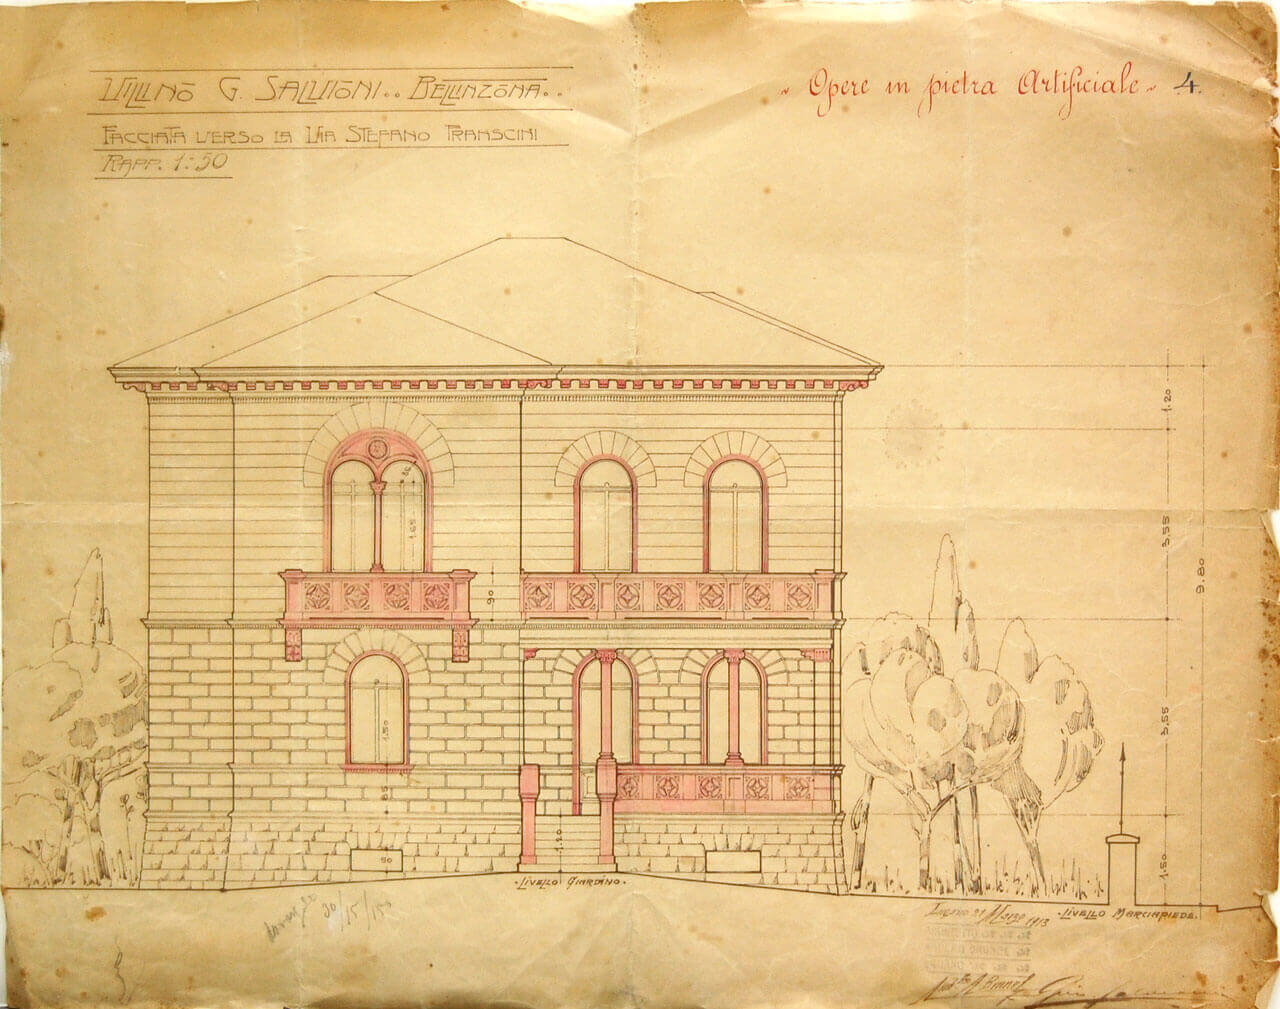 VILLINO G. SALVIONI.. BELLINZONA..
FACCIATA VERSO LA VIA STEFANO FRANSCINI
RAPP. 1:50
~ Opere in pietra Artificiale ~ 4.
1.20
3,55
9.80
3,55
1.50
1.65
90
1,50
85
50
1.20
·LIVELLO GIARDINO·
·LIVELLO MARCIAPIEDE·
Marzo 1913
30/15/15